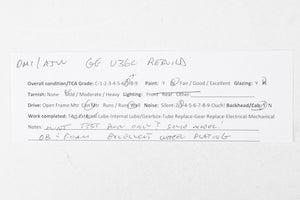 OMI/ATW GE U36C REBUILD
Overall condition/TCA Grade: C-1-2-3-4-5-6-7-8-9 Paint: Y Fair / Good / Excellent Glazing: Y N
Tarnish: None Mild / Moderate / Heavy Lighting: Front Rear Other
Drive: Open Frame Mtr Can Mtr Runs / Runs Well Noise: Silent 3-4-5-6-7-8-9 Ouch! Backhead/Cab: Y N
Work completed: External Lube-Internal Lube/Gearbox-Tube Replace-Gear Replace-Electrical-Mechanical
Notes: MINT TEST RUN ONLY? SOLID MODEL
OB & FOAM EXCELLENT WHEEL PLATING